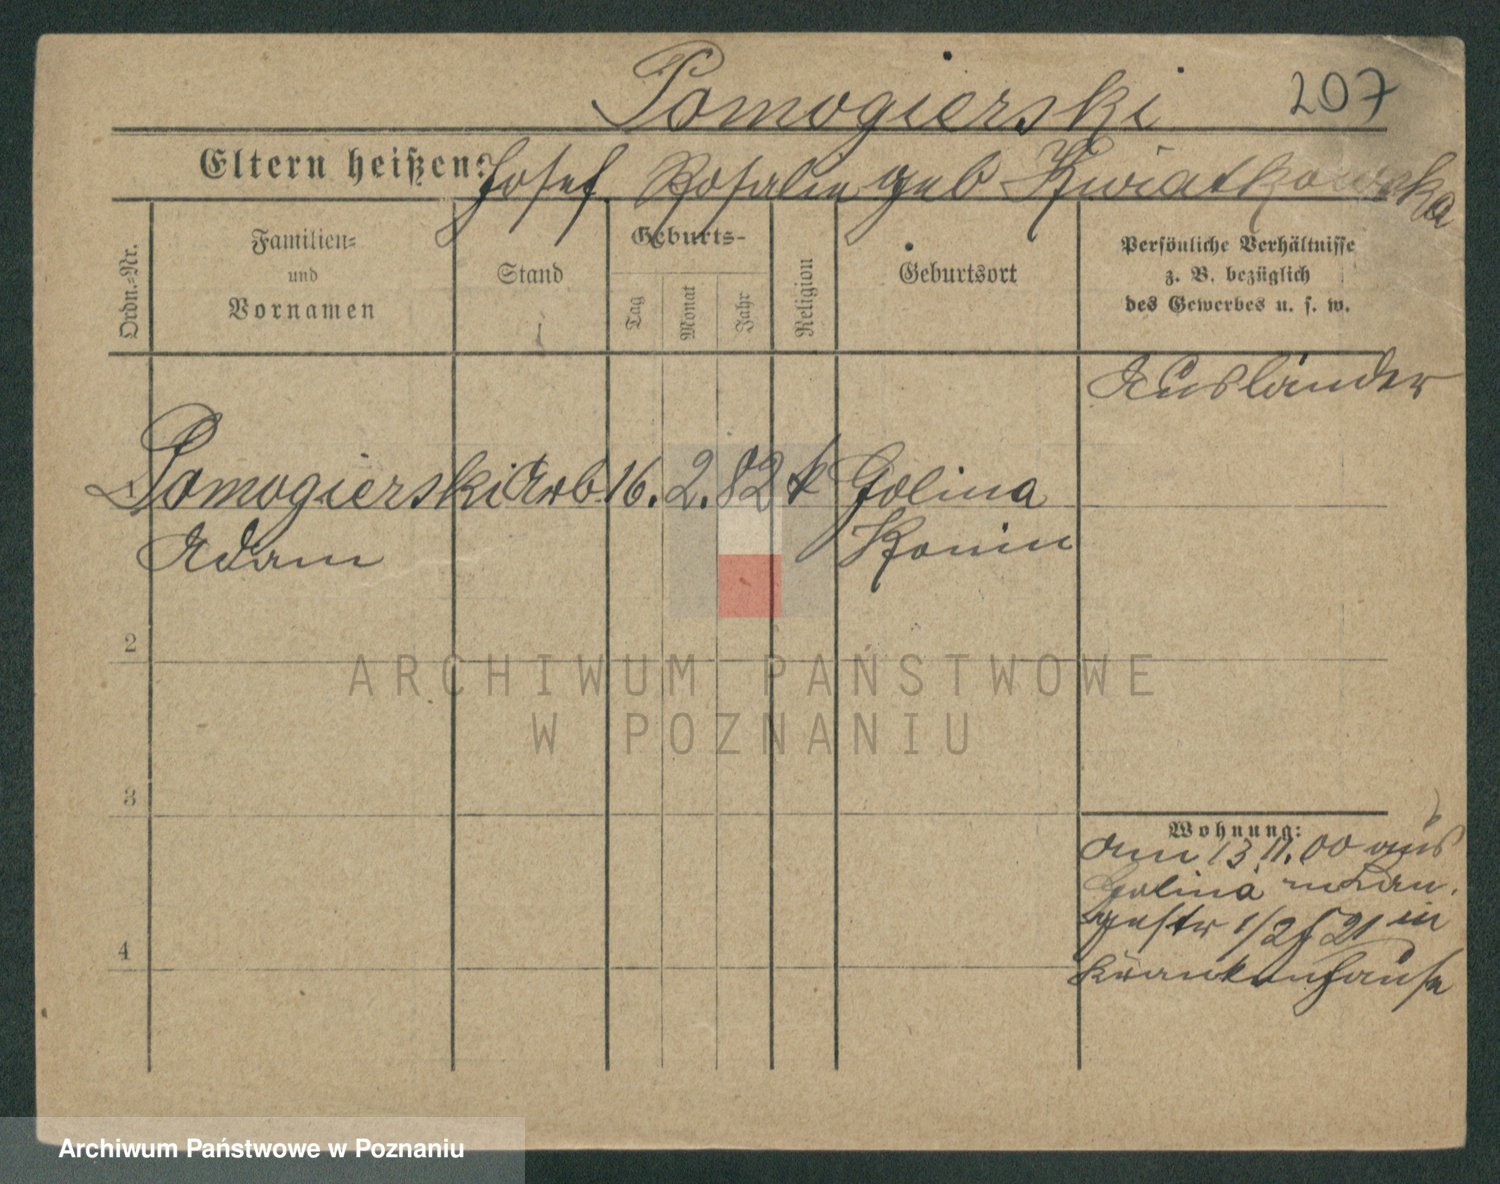 Pomogierski 207
Eltern heißen: Josef Rosalie geb Kwiatkowska
Ordn.-Nr.
Familien-
und
Vornamen
Stand
Geburts-
Tag
Monat
Jahr
Religion
Geburtsort
Persönliche Verhältnisse
z. B. bezüglich
des Gewerbes u. s. w.
Ausländer
Pomogierski Arb 16. 2. 82 k Golina
Adam Konin
2
3
4
Wohnung:
am 13.11.00 aus
Golina
1/2 21 in
Krankenhause
ARCHIWUM PAŃSTWOWE
W POZNANIU
Archiwum Państwowe w Poznaniu